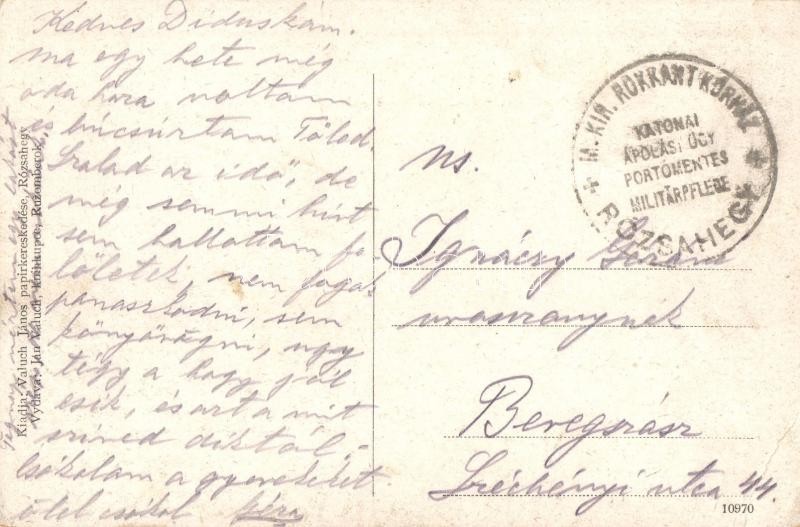 Kedves Diduskám.
ma egy hete még
oda haza voltam
és búcsúztam Tőled.
Szalad az idő, de
még semmi hírt
sem hallottam fe-
lőletek, nem fogok
panaszkodni, sem
könyörögni, úgy
tégy a hogy jól
esik, és azt a mit
szíved diktál.
Csókolom a gyerekeket
ölel csókol Géza
Kiadja: Valuch János papirkereskedése, Rózsahegy
Vydáva: Ján Valuch, kníhkupec, Ružomberok.
M. KIR. ROKKANT KÓRHÁZ
KATONAI
ÁPOLÁSI ÜGY
PORTÓMENTES
MILITÄRPFLEGE
RÓZSAHEGY
ns.
Ignáczy Gézáné
urasszonynak
Beregszász
Széchényi utca 44.
10970